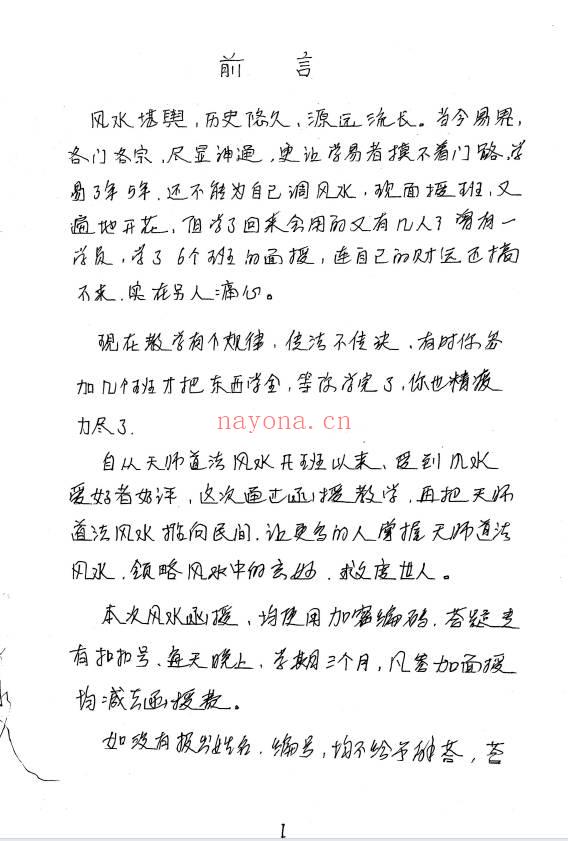 前 言
风水堪舆,历史悠久,源远流长。当今易界,
各门各宗,尽显神通,更让学易者摸不着门路,学
易3年5年.还不能为自己调风水,现面授班,又
遍地开花,但学了回来会用的又有几人?曾有一
学员,学了6个班的面授,连自己的财运还搞
不来.实在另人痛心。
现在教学有个规律,传法不传诀.有时你参
加几个班才把东西学全,等你学完了,你也精疲
力尽了.
nayona.cn
自从天师道法风水开班以来、受到风水
爱好者好评,这次通过函授教学,再把天师
道法风水推向民间.让更多的人掌握天师道法
风水.领略风水中的玄妙.救度世人。
本次风水函授,均使用加密编码.答疑专
有扣扣号.每天晚上,学期三个月,凡参加面授
均减去函授款。
如没有报出姓名.编号,均不给予解答,答
1